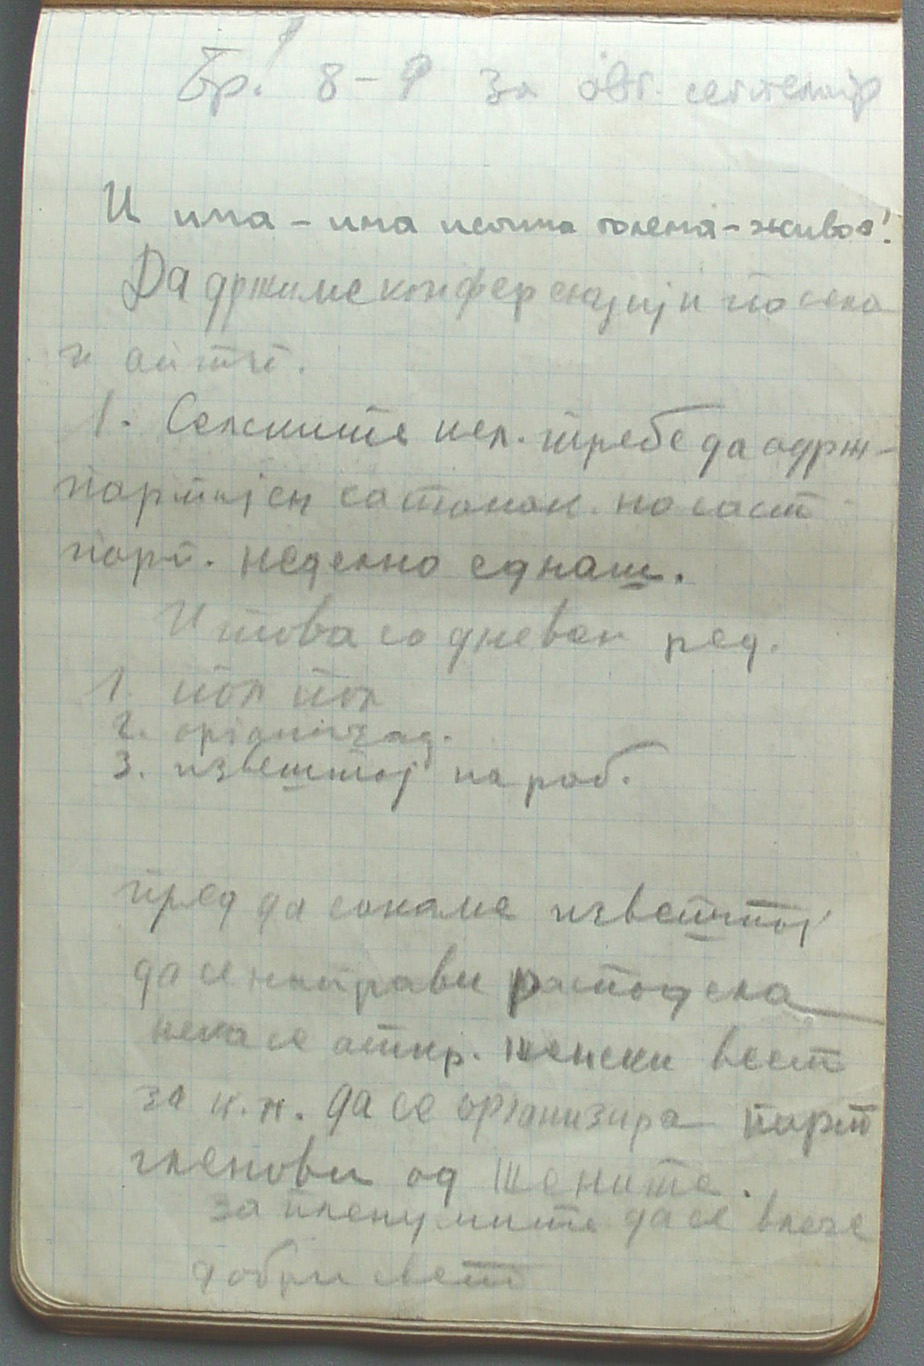 Бр. 8-9 за авг. септемвр
И има - има истина голема - жива!
Да држиме конференции по села
и
1. Селските кел. требе да одрж-
партијен состанок. на сост
парт. неделно еднаш.
И това со дневен ред.
1. пол пол
2. организац.
3. извештај на раб.
пред да сокаме извештај
да се направи расподела
нека се откр. женски
за к.н. да се организира парт
членови од жените.
за пленумите да се влече
добри